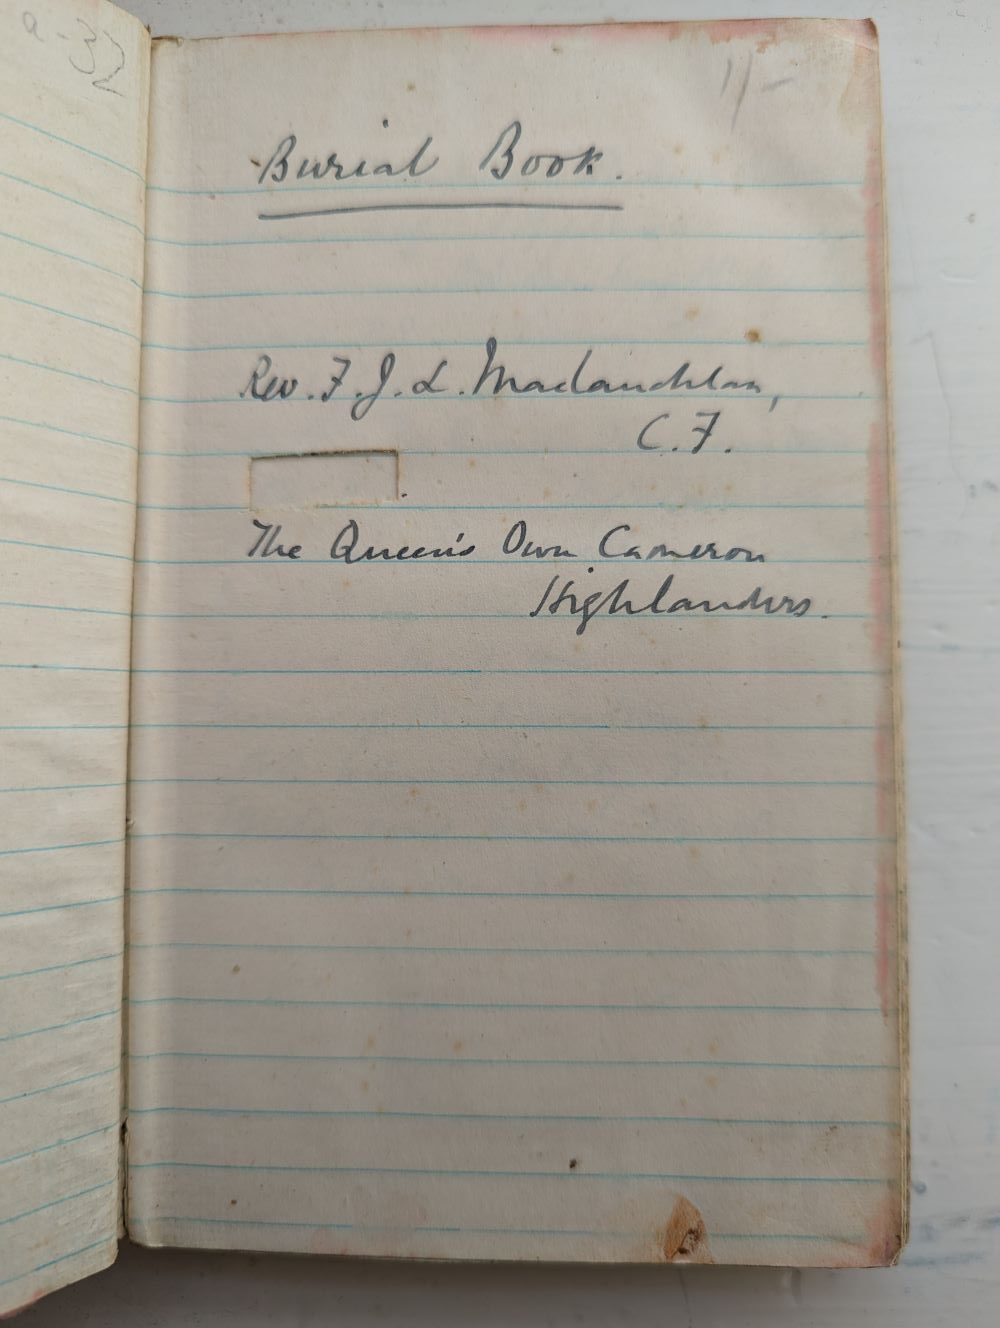 a-32
1/-
Burial Book.
Rev. F. J. L. Maclauchlan,
C. F.
The Queen's Own Cameron
Highlanders.